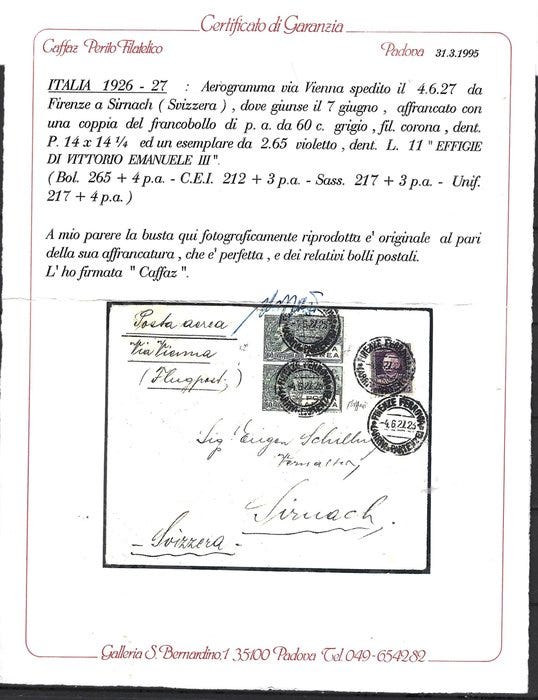 Certificato di Garanzia
Caffaz Perito Filatelico Padova 31.3.1995
ITALIA 1926 - 27 : Aerogramma via Vienna spedito il 4.6.27 da
Firenze a Sirnach ( Svizzera ) , dove giunse il 7 giugno , affrancato con
una coppia del francobollo di p. a. da 60 c. grigio , fil. corona , dent.
P. 14 x 14 ¼ ed un esemplare da 2.65 violetto , dent. L. 11 " EFFIGIE
DI VITTORIO EMANUELE III ".
( Bol. 265 + 4 p.a. - C.E.I. 212 + 3 p.a. - Sass. 217 + 3 p.a. - Unif.
217 + 4 p.a. )
A mio parere la busta qui fotograficamente riprodotta e' originale al pari
della sua affrancatura , che e' perfetta , e dei relativi bolli postali.
L' ho firmata " Caffaz ".
Posta aerea
Via Vienna
(Flugpost)
FIRENZE FERROVIA
-4.6.27.23
Sig. Eugen Schilling
Sirnach.
- Svizzera -
Galleria S. Bernardino,1 35100 Padova Tel 049-654282